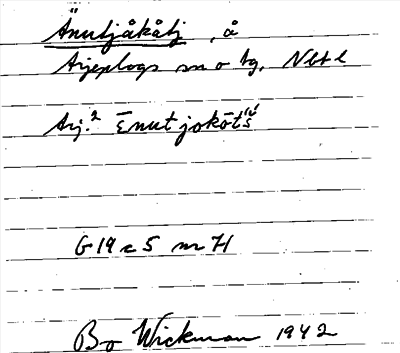 Änutjåkåtj, å
Arjeplogs sn o tg, Nbtl
Arj.² Ēnutjokōtš
G 19 c 5 nr 71
Bo Wickman 1942